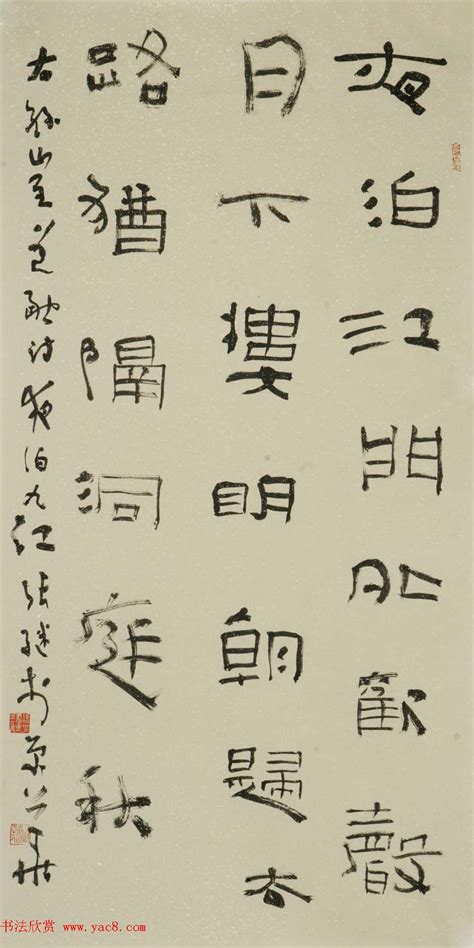 夜泊江門外歡聲
月下樓明朝歸去
路猶隔洞庭秋
右 山 道融詩夜泊九江張繼書
书法欣赏 www.yac8.com